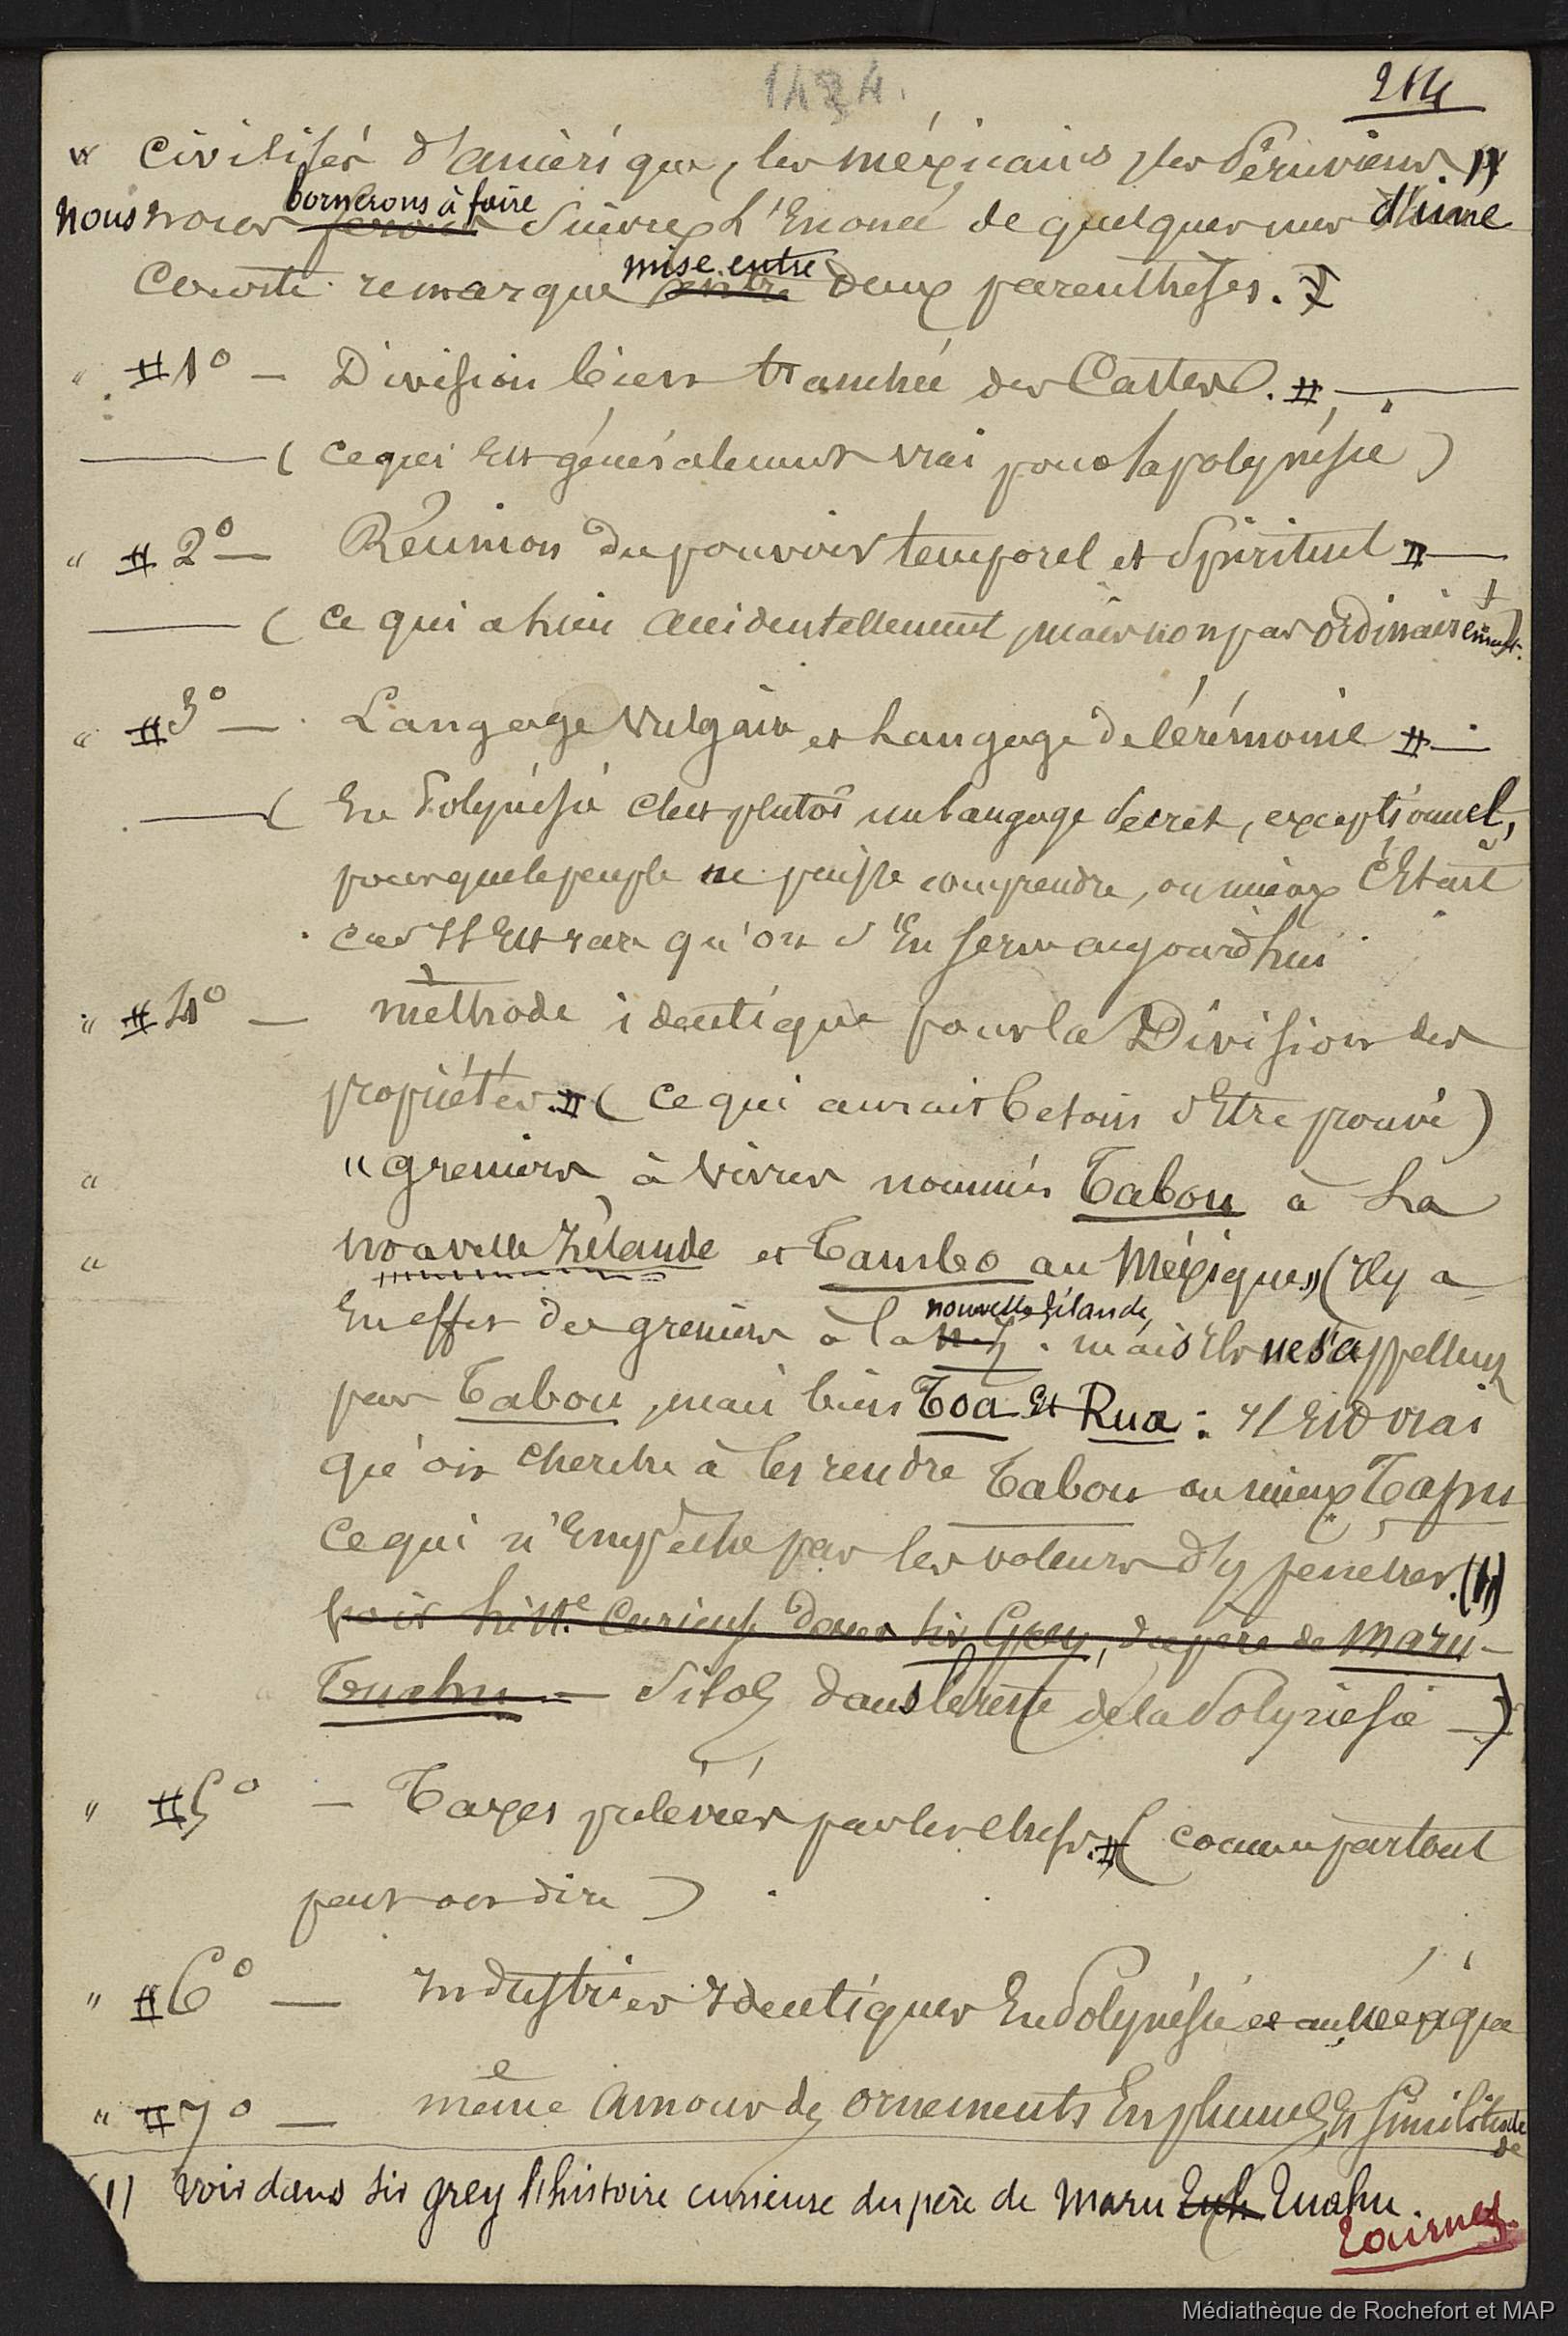 1484.
214
" civilisés d'amérique, les méxicains, les Péruviens. »
nous nous bornerons à faire ferons suivre l'Enoncé de quelques uns d'une
courte remarque mise entre entre deux parenthèses.
" # 1° — Division bien tranchée des Castes. # —
— ( ce qui Est généralement vrai pour la polynésie )
" # 2° — Réunion du pouvoir temporel et Spirituel # —
— ( ce qui a lieu accidentellement, mais non pas ordinairement).
" # 3° — Langage vulgaire et Langage de Cérémonie # —
— ( En Polynésie c'est plutôt un langage secret, exceptionnel,
pour que le peuple ne puisse comprendre, ou mieux C'Etait
car Il Est rare qu'on s'En serve aujourd'hui
" # 4° — méthode identique pour la Division des
propriétés. # ( ce qui aurait besoin d'Etre prouvé )
" " greniers à vivres nommés Tabou à La
" nouvelle Zélande et Tambo au Méxique » ( Il y a
En effet des greniers à la n. z. nouvelle Zélande, mais Ils ne s'appellent
pas Tabou, mais bien Toa Et Rua : Il Est vrai
qu'on cherche à les rendre Tabou ou mieux Tapu
ce qui n'Empêche pas les voleurs d'y pénétrer. (1)
voir histre. curieuse dans sir Grey, du père de Maru-
Tuahu — Pitoy dans le reste de la Polynésie — )
" # 5° — Taxes prélevées par les chefs. # ( comme partout
peut on dire ) .
" # 6° — Industries Identiques En Polynésie et au Méxique
" # 7° — même amour des ornements En plumes, Et similitude
de
(1) voir dans sir grey l'histoire curieuse du père de Maru Tuh Tuahu.
Tournez.
Médiathèque de Rochefort et MAP